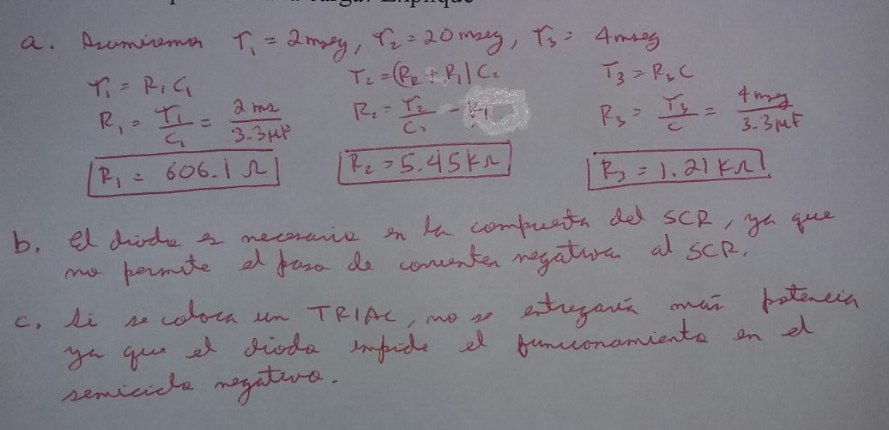 a. Asumiremos τ₁ = 2mseg, τ₂ = 20mseg, τ₃ = 4mseg
τ₁ = R₁C₁
R₁ = τ₁/C₁ = 2 ms/3.3μF
R₁ = 606.1 Ω
τ₂ = (R₂ + R₁)C₂
R₂ = τ₂/C₂ - R₁
R₂ = 5.45 KΩ
τ₃ = R₂C
R₃ = τ₃/C = 4 mseg/3.3μF
R₃ = 1.21 KΩ
b. El diodo es necesario en la compuerta del SCR, ya que
no permite el paso de corrientes negativas al SCR.
c. Si se coloca un TRIAC, no se entregaría más potencia
ya que el diodo impide el funcionamiento en el
semiciclo negativo.